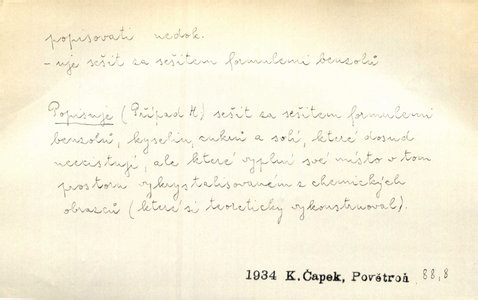 popisovati nedok.
-uje sešit za sešitem formulemi benzolů
Popisuje (Případ H) sešit za sešitem formulemi
benzolů, kyselin, cukrů a solí, které dosud
neexistují, ale které vyplní své místo v tom
prostoru vykrystalisovaném z chemických
obrazců (které si teoreticky vykonstruoval).
1934 K.Čapek, Povětroň 88,8